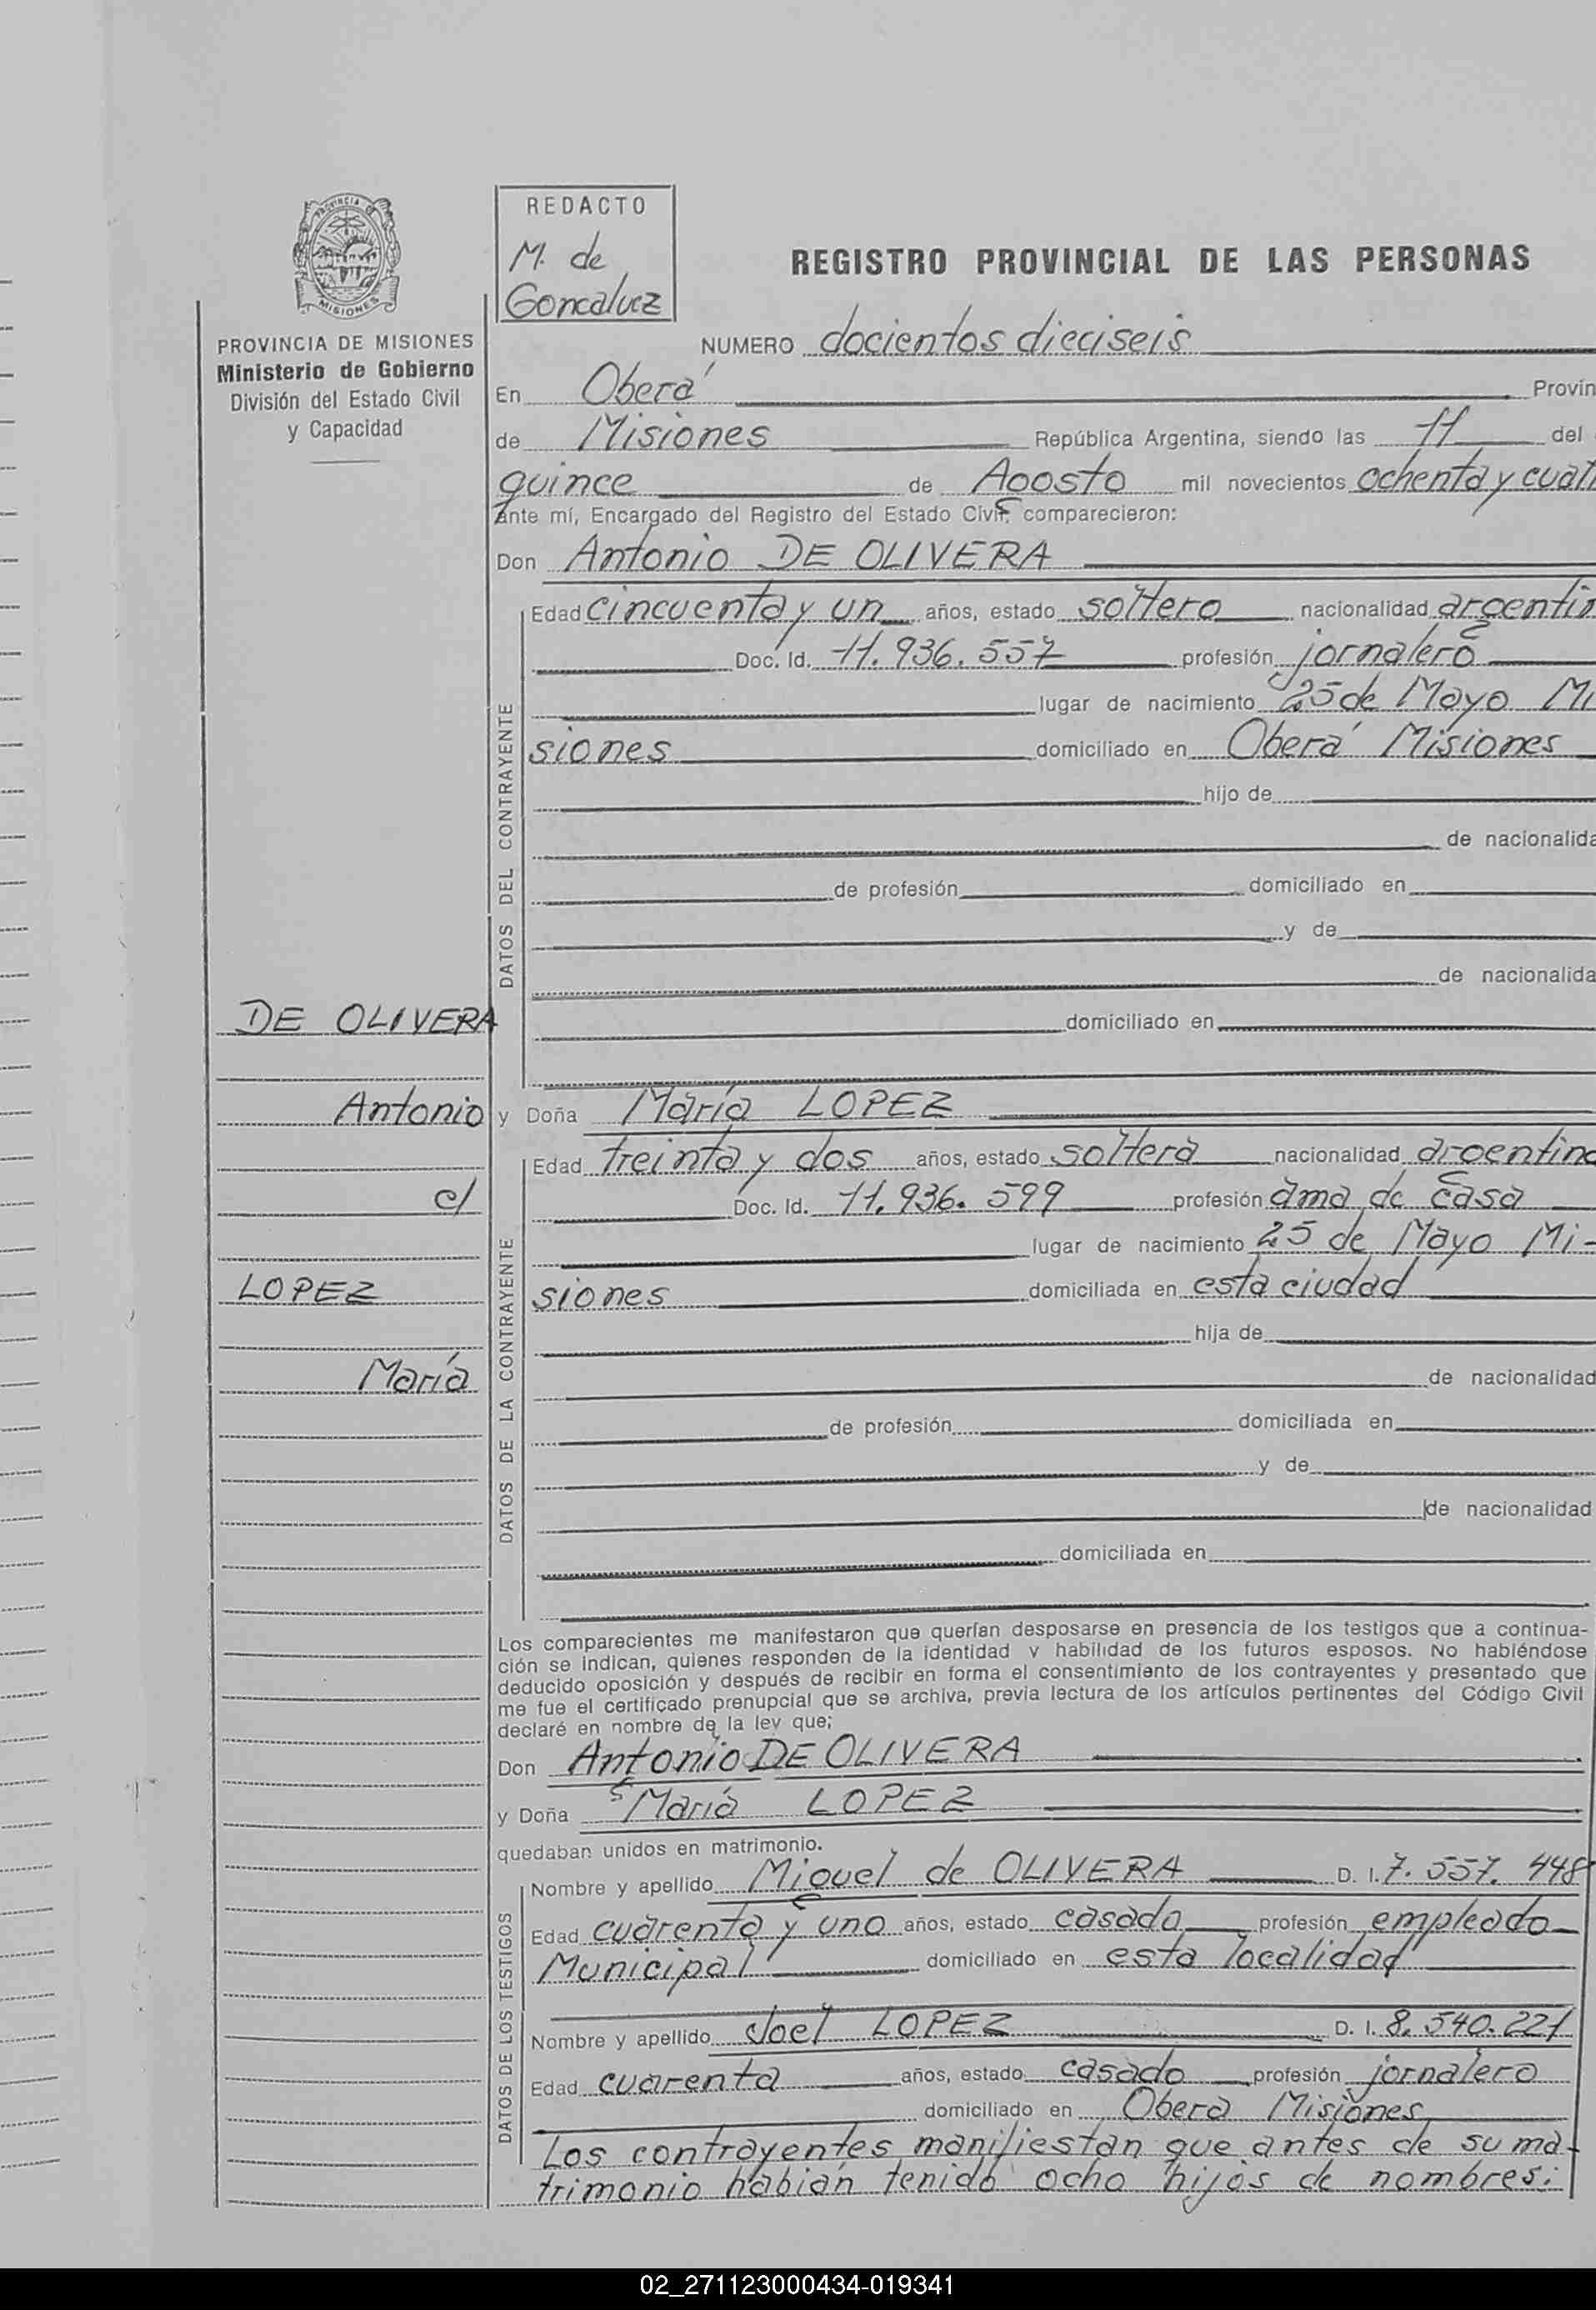 REDACTO
M. de
Goncalvez
PROVINCIA DE
MISIONES
REGISTRO PROVINCIAL DE LAS PERSONAS
PROVINCIA DE MISIONES
Ministerio de Gobierno
División del Estado Civil
y Capacidad
NUMERO docientos dieciseis
En Oberá Provin
de Misiones República Argentina, siendo las 11 del
quince de Agosto mil novecientos ochenta y cuat
Ante mí, Encargado del Registro del Estado Civil, comparecieron:
Don Antonio DE OLIVERA
DATOS DEL CONTRAYENTE
Edad cincuenta y un años, estado soltero nacionalidad argentin
Doc. Id. 11.936.557 profesión jornalero
lugar de nacimiento 25 de Mayo Mi
siones domiciliado en Oberá Misiones
hijo de
de nacionalida
de profesión domiciliado en
y de
de nacionalida
domiciliado en
DE OLIVERA
Antonio
c/
LOPEZ
María
y Doña María LOPEZ
DATOS DE LA CONTRAYENTE
Edad treinta y dos años, estado soltera nacionalidad argentina
Doc. Id. 11.936.599 profesión ama de casa
lugar de nacimiento 25 de Mayo Mi-
siones domiciliada en esta ciudad
hija de
de nacionalidad
de profesión domiciliada en
y de
de nacionalidad
domiciliada en
Los comparecientes me manifestaron que querían desposarse en presencia de los testigos que a continua-
ción se indican, quienes responden de la identidad y habilidad de los futuros esposos. No habiéndose
deducido oposición y después de recibir en forma el consentimiento de los contrayentes y presentado que
me fue el certificado prenupcial que se archiva, previa lectura de los artículos pertinentes del Código Civil
declaré en nombre de la ley que;
Don Antonio DE OLIVERA
y Doña María LOPEZ
quedaban unidos en matrimonio.
DATOS DE LOS TESTIGOS
Nombre y apellido Miguel de OLIVERA D. I. 7.557.448
Edad cuarenta y uno años, estado casado profesión empleado
Municipal domiciliado en esta localidad
Nombre y apellido Joel LOPEZ D. I. 8.540.221
Edad cuarenta años, estado casado profesión jornalero
domiciliado en Oberá Misiones
Los contrayentes manifiestan que antes de su ma-
trimonio habian tenido ocho hijos de nombres:
02_271123000434-019341